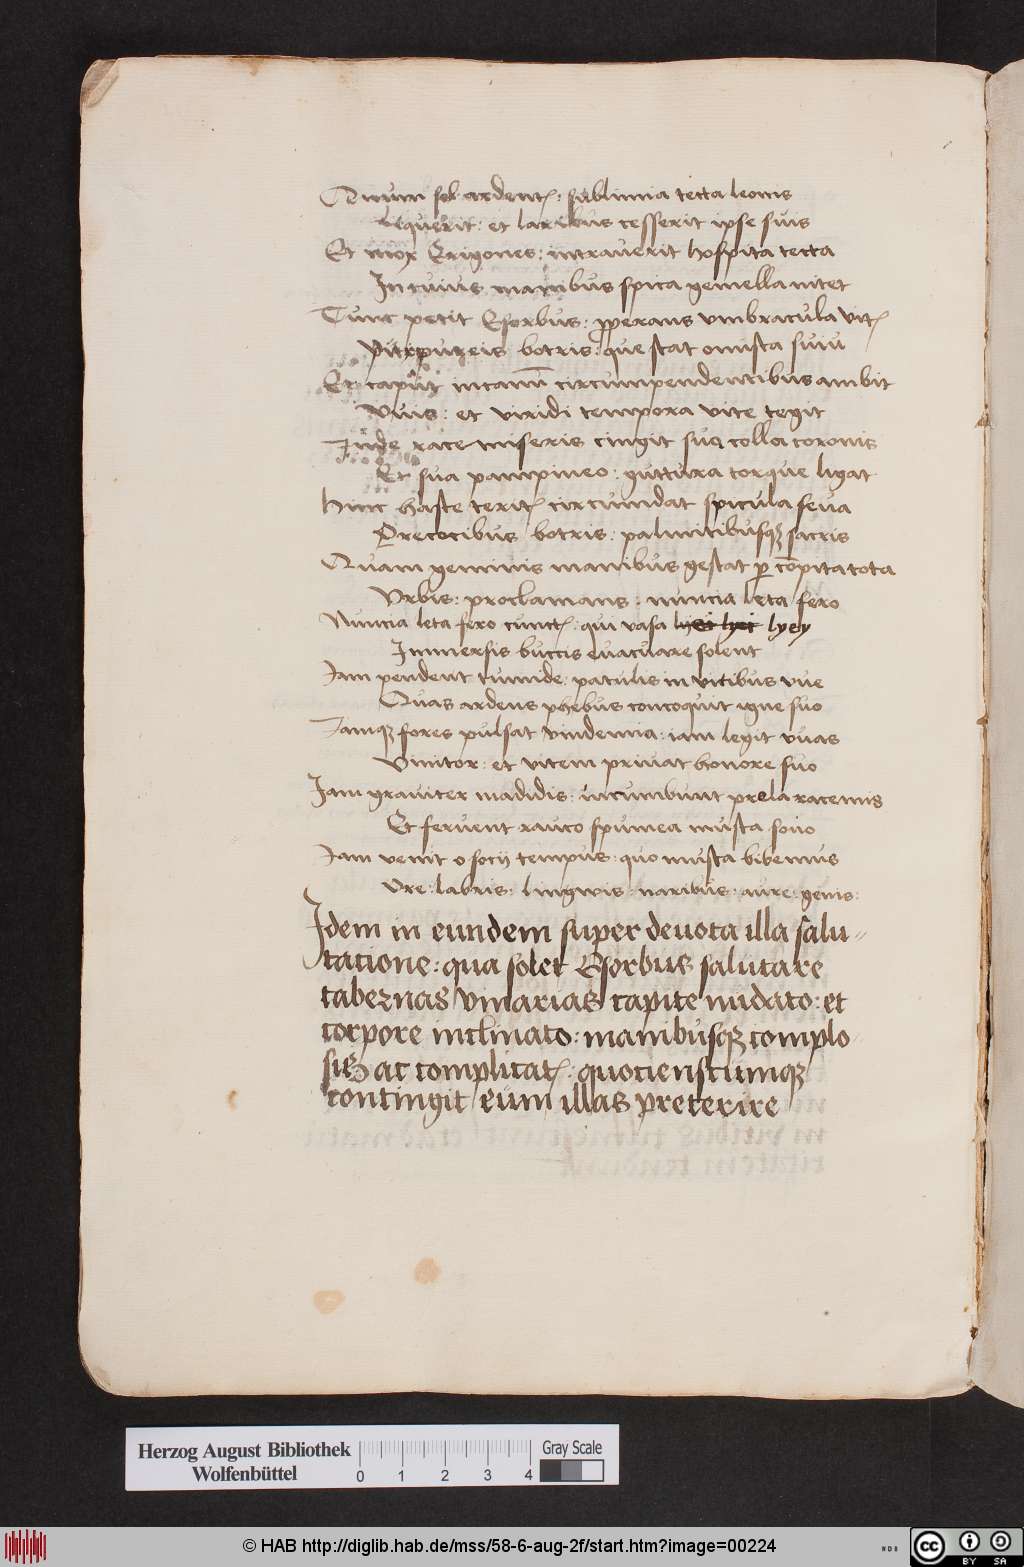 Quum sol ardentis : sublimia tecta leonis
Liquerit : et laribus cesserit ipse suis
Et mox Erigones : intrauerit hospita tecta
In cuius manibus spica gemella nitet
Tunc petit Esorbus : properans vmbracula vitis
purpureis botris : que stat onusta suis
Et caput incanum circumpendentibus ambit
Vuis : et viridi tempora vite tegit
Inde racemiseris cingit sua colla coronis
Et sua pampineo : guttura torque ligat
Hinc haste teritis circumdat spicula seua
Precocibus botris : palmitibusque sacris
Quam geminis manibus gestat per compita tota
Vrbis : proclamans : nuncia leta fero
Nuncia leta fero cunctis : qui vasa lyei lyei lyey
Immersis buccis euacuare solent
Iam pendent tumide : patulis in vitibus vue
Quas ardens phebus concoquit igne suo
Iamque fores pulsat vindemia : iam legit vuas
Vinitor : et vitem priuat honore suo
Iam grauiter madidis : incumbunt prela racemis
Et feruent rauco spumea musta sono
Iam venit o socij tempus : quo musta bibemus
Ore : labris : lingwis : naribus : aure : genis :
Idem in eundem super deuota illa salu-
tacione : qua solet Esorbus salutare
tabernas vinarias capite nudato : et
corpore inclinato : manibusque complo-
sis ac complicatis : quocienscumque
contingit eum illas preterire
Herzog August Bibliothek
Wolfenbüttel
0 1 2 3 4
Gray Scale
© HAB http://diglib.hab.de/mss/58-6-aug-2f/start.htm?image=00224
cc BY SA